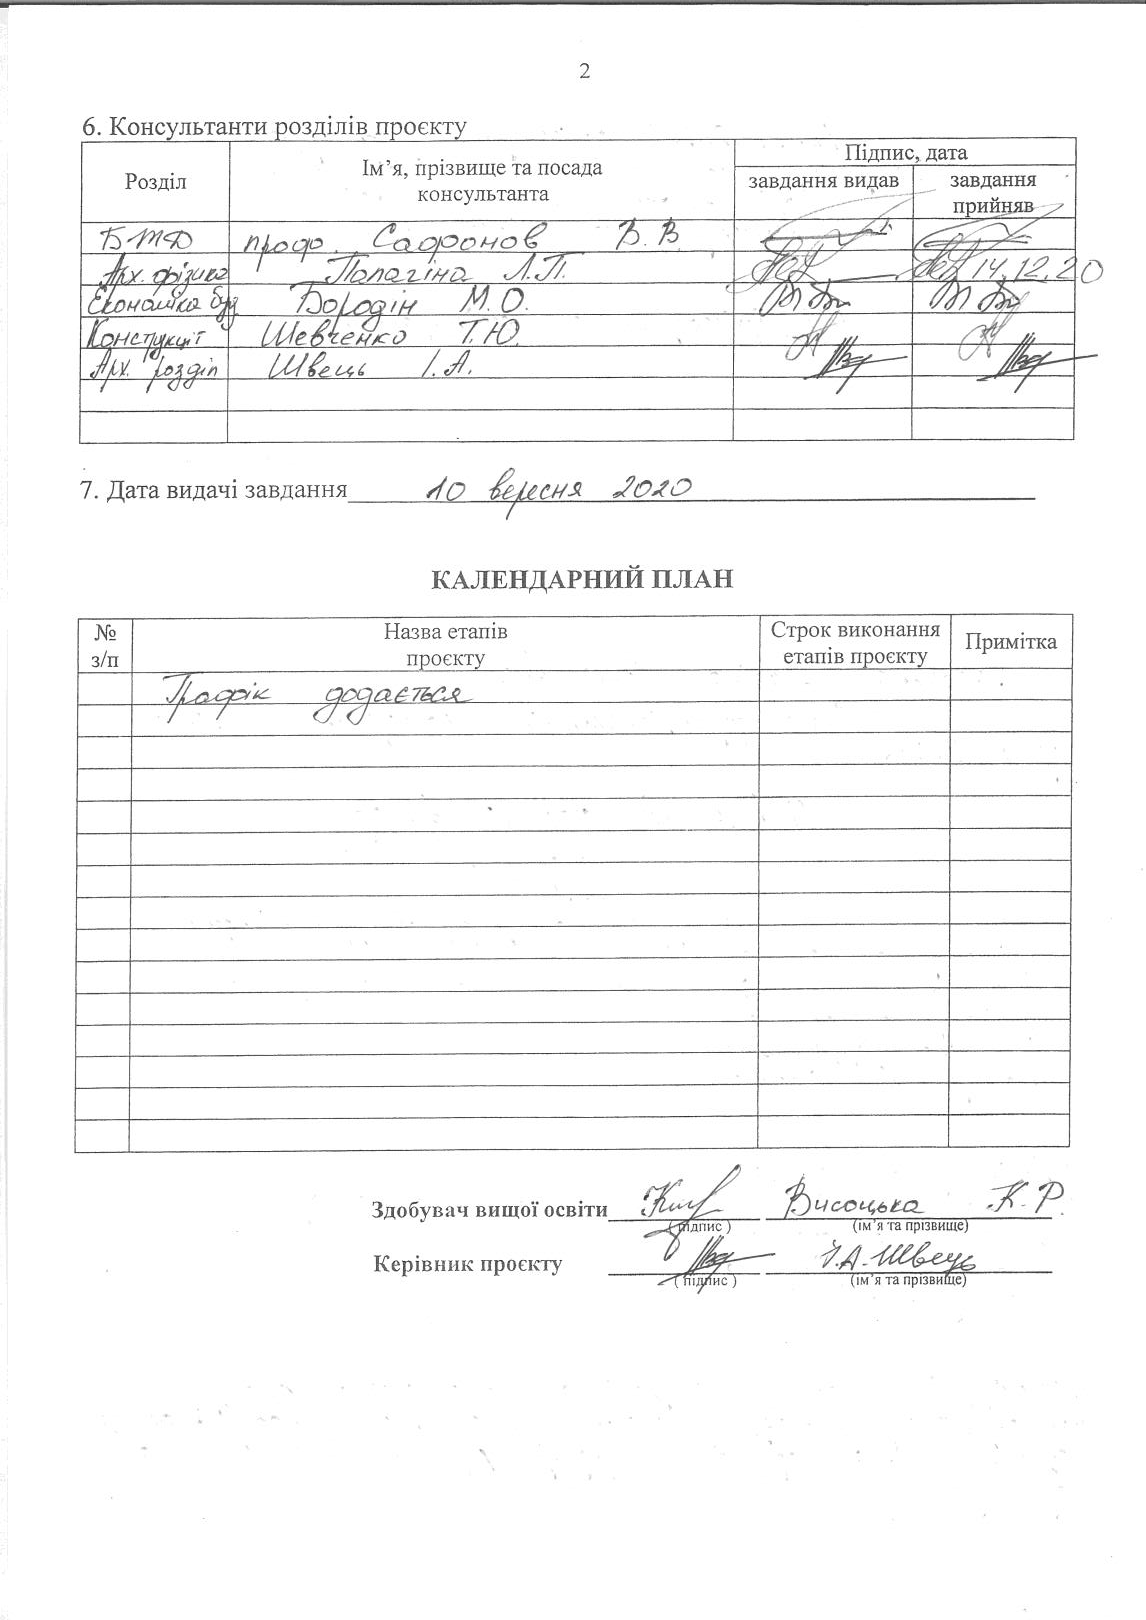 2
6. Консультанти розділів проєкту
Розділ Ім’я, прізвище та посада консультанта Підпис, дата
завдання видав завдання прийняв
БЖД проф. Сафронов В.В
Арх. фізика Л.П. 14.12.20
Економіка буд Бородін М.О.
Конструкції Шевченко Т.Ю.
Арх. розділ Швець І.А.
7. Дата видачі завдання 10 вересня 2020
КАЛЕНДАРНИЙ ПЛАН
№ з/п Назва етапів проєкту Строк виконання етапів проєкту Примітка
Графік додається
Здобувач вищої освіти Висоцька К.Р.
( підпис ) (ім’я та прізвище)
Керівник проєкту І.А. Швець
( підпис ) (ім’я та прізвище)